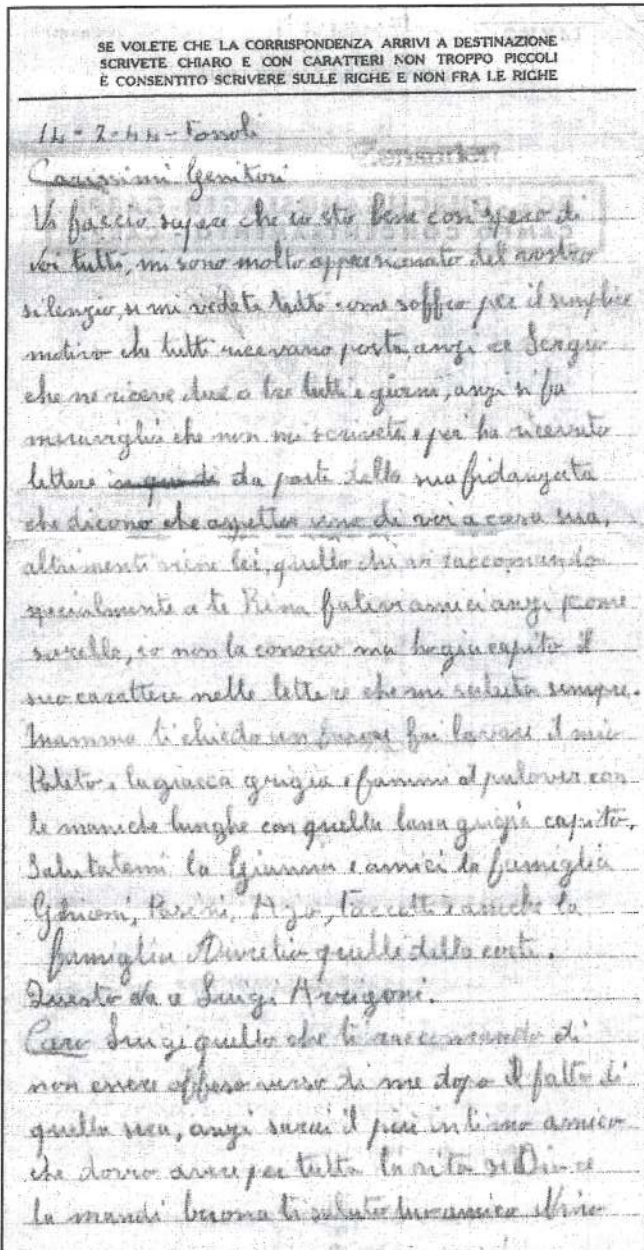 SE VOLETE CHE LA CORRISPONDENZA ARRIVI A DESTINAZIONE
SCRIVETE CHIARO E CON CARATTERI NON TROPPO PICCOLI
È CONSENTITO SCRIVERE SULLE RIGHE E NON FRA LE RIGHE
14-7-44-Fossoli
Carissimi Genitori
Vi faccio sapere che io sto bene cosi spero di
voi tutti, mi sono molto del vostro
silenzio, se mi vedete tutto come soffro per il semplice
motivo che tutti ricevano posta, anzi ce Sergio
che ne riceve due o tre tutti e giorni, anzi si fa
meraviglia che non mi scrivete, e poi ha ricevuto
lettere da parte della sua fidanzata
che dicono che aspetta uno di voi a casa sua,
altrimenti viene lei, quello che vi raccomando
specialmente a te Rina fatevi amici anzi come
sorelle, io non la conosco ma ho gia capito il
suo carattere nelle lettere che mi saluta sempre.
Mamma ti chiedo un favore fai lavare il mio
Paletò, la giacca grigia e fammi il pulover con
le maniche lunghe con quella lana grigia capito.
Salutatemi la Gianna e amici la famiglia
Ghioni, e anche la
famiglia Aurelia quelle della corte.
Questo da a Luigi Arrigoni.
Caro Luigi quello che ti raccomando di
non essere offeso verso di me dopo il fatto di
quella sera, anzi sarai il più intimo amico
che dovro avere per tutta la vita se Dio ce
la mandi buona ti saluto tuo amico Nino